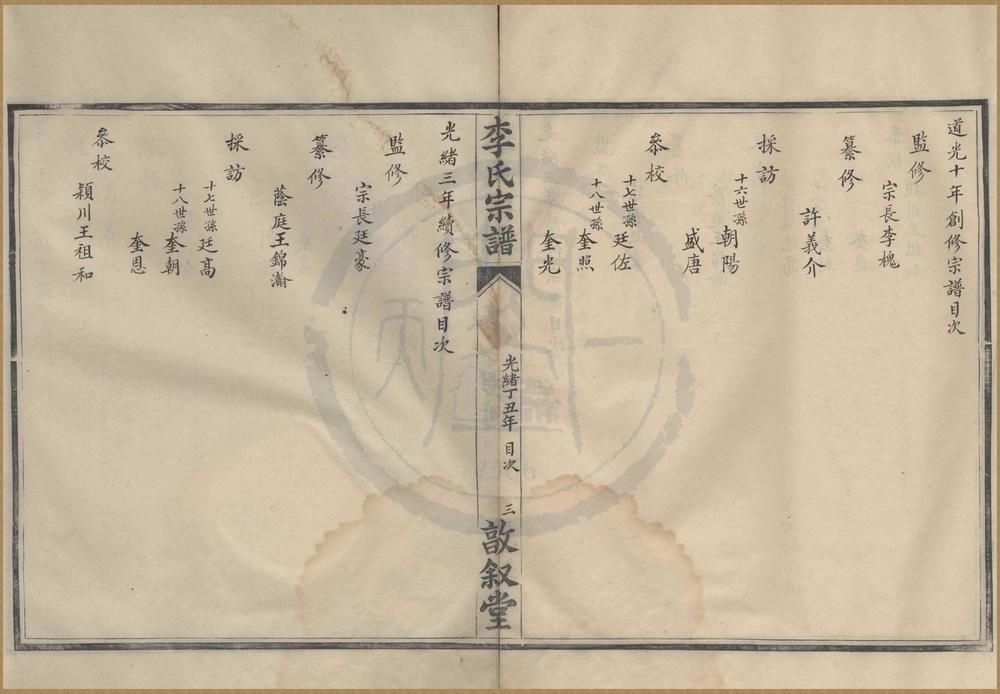 道光十年創修宗譜目次
監修
宗長李槐
纂修
許義介
採訪
十六世孫朝陽
盛唐
叅校
十七世孫廷佐
十八世孫奎照
奎光
李氏宗譜
光緒丁丑年 目次
三
敦叙堂
光緒三年續修宗譜目次
監修
宗長廷豪
纂修
蔭庭王錦瀚
採訪
十七世孫廷高
十八世孫奎朝
奎恩
叅校
潁川王祖和